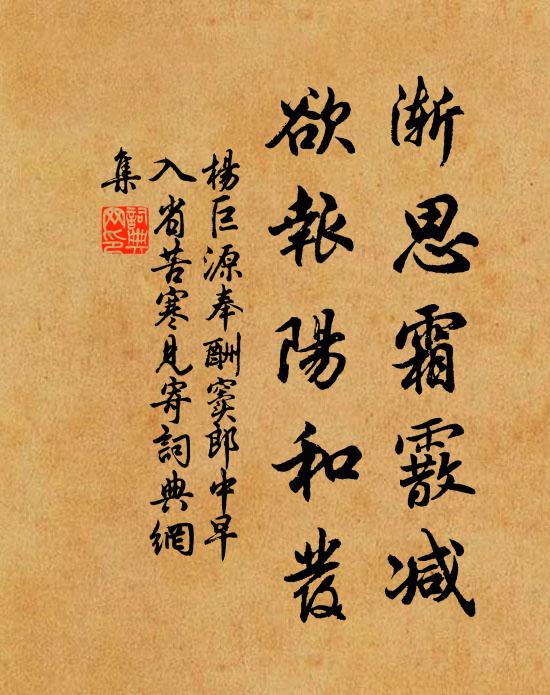 漸思霜霰減
欲報陽和發
楊巨源奉酬竇郎中早
入省苦寒見寄詞典網
集
詞典
網印